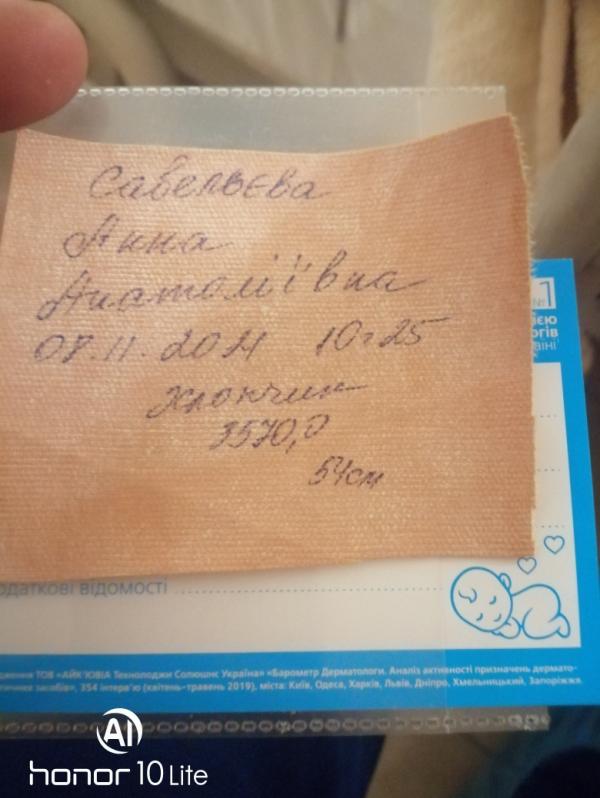 Савельєва
Анна
Анатоліївна
08.11.2021 10г25
Хлопчик
3570,0
54см
№1
ією
огів
ВІНІ
одаткові відомості
дження ТОВ «АЙК'ЮВІА Текнолоджи Солюшнс Україна» «Барометр Дерматологи. Аналіз активності призначень дермато-
тичних засобів», 354 інтерв'ю (квітень-травень 2019), міста: Київ, Одеса, Харків, Львів, Дніпро, Хмельницький, Запоріжжя.
AI
honor 10 Lite